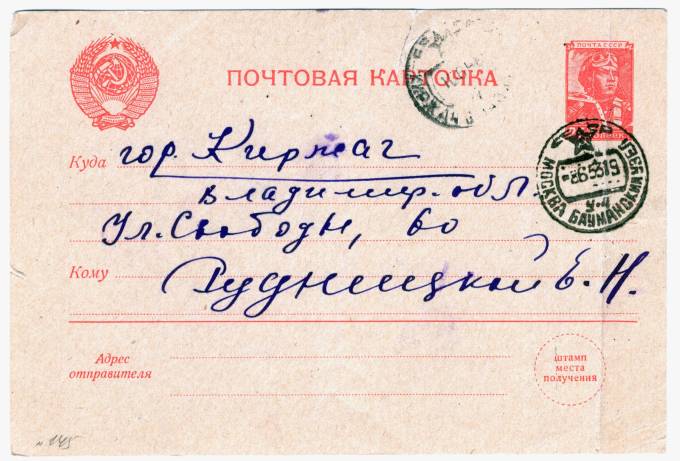 ПОЧТОВАЯ КАРТОЧКА
ПОЧТА СССР
Куда гор. Киржач
Владимир. обл.
Ул. Свободы, 60
Кому Рудницкой Е. Н.
Адрес
отправителя
штамп
места
получения
МОСКВА БАУМАНСКИЙ УЗЕЛ
-865319
У-4
№ 145